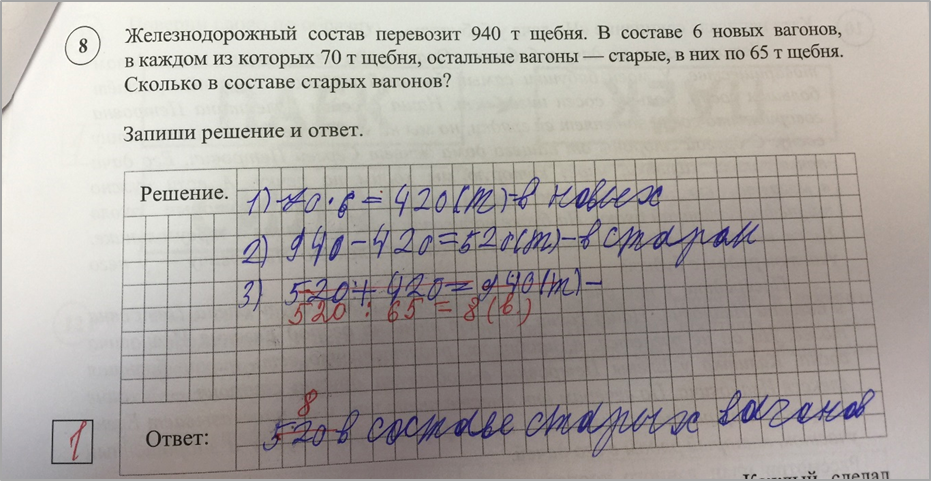 8
Железнодорожный состав перевозит 940 т щебня. В составе 6 новых вагонов,
в каждом из которых 70 т щебня, остальные вагоны — старые, в них по 65 т щебня.
Сколько в составе старых вагонов?
Запиши решение и ответ.
Решение. 1) 70·6=420(т)-в новых
2) 940-420=520(т)-в старых
3) 520+420=940(т)-
520:65=8(в.)
8
1 Ответ: 520 в составе старых вагонов
Каждый сделал